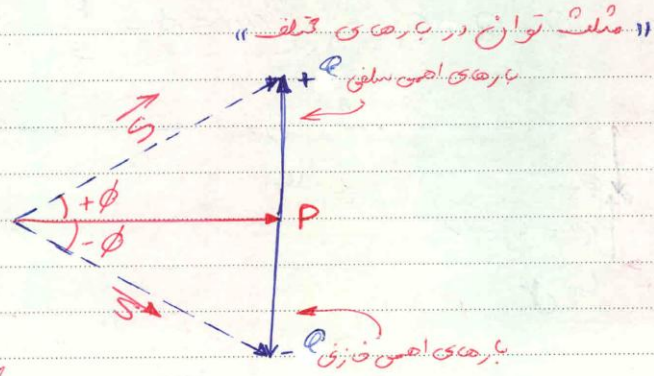 «مثلث توان در بارهای مختلف»
+Q بارهای اهمی سلفی
S
+φ
P
-φ
S
-Q بارهای اهمی خازنی